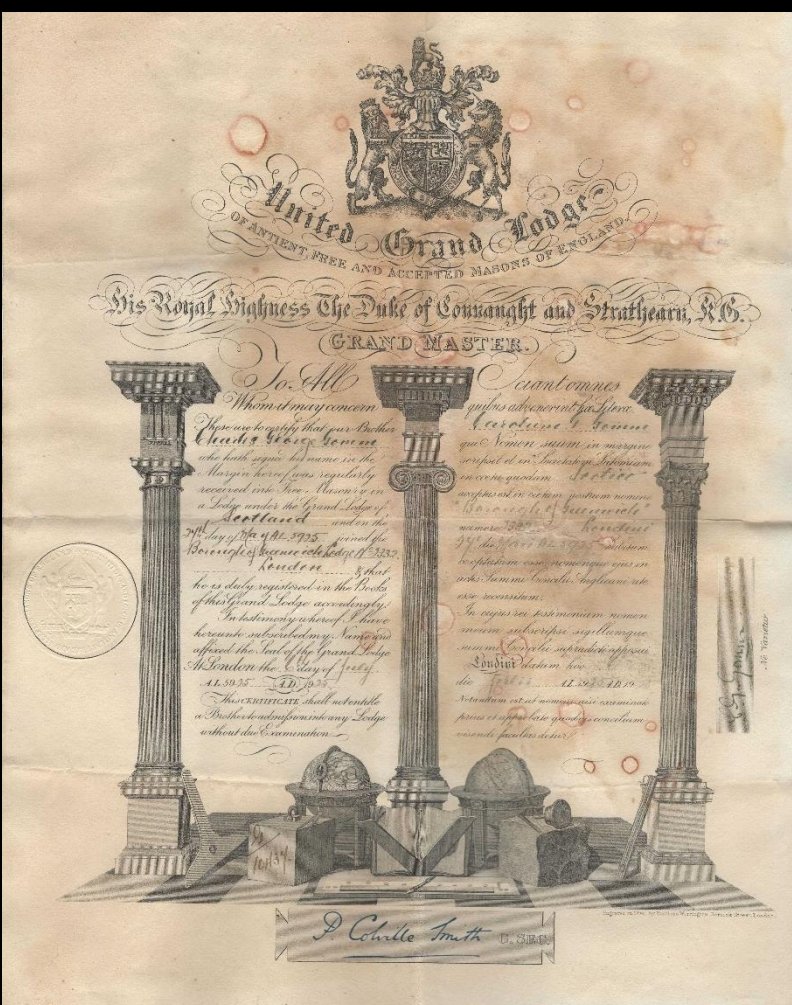 United Grand Lodge
OF ANTIENT, FREE AND ACCEPTED MASONS OF ENGLAND.
His Royal Highness The Duke of Connaught and Strathearn, K.G.
GRAND MASTER.
To All
Whom it may concern
These are to certify that our Brother
Claude George Gomme
who hath signed his name in the
Margin hereof was regularly
received into Free-Masonry in
a Lodge under the Grand Lodge of
Scotland and on the
day of May A.L. 5935 joined the
Borough of Greenwich Lodge No 3332
London & that
he is duly registered in the Books
of this Grand Lodge accordingly.
In testimony whereof I have
hereunto subscribed my Name and
affixed the Seal of the Grand Lodge
At London the day of July
A.L. 5935 A.D. 1935
This CERTIFICATE shall not entitle
a Brother to admission into any Lodge
without due Examination
Sciant omnes
quibus advenerint hæ Literæ
G. Gomme
qui Nomen suum in margine
scripsit et in
in cœtu quodam
nostrum nomine
Borough of Greenwich
numero Londini
cooptatum esse nomenque ejus in
actis Summi Concilii Angliæ rite
esse recensitum.
In cujus rei testimonium nomen
meum subscripsi sigillumque
summi Concilii supradicti apposui
Londini datum hoc
die A.L. 5935 A.D. 19
Notandum est ut nemini nisi examinato
prius et approbato quodvis concilium
visendi facultas detur
Ne Varietur
P. Colville Smith G. SEC.